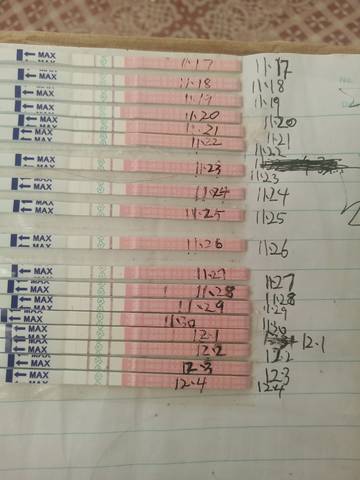 ← MAX 11.17 11.17
← MAX 11.18 11.18
← MAX 11.19 11.19
← MAX 11.20 11.20
← MAX 11.21 11.21
← MAX 11.22 11.22
← MAX 11.23 11.23
← MAX 11.24 11.24
← MAX 11.25 11.25
← MAX 11.26 11.26
← MAX 11.27 11.27
← MAX 11.28 11.28
← MAX 11.29 11.29
← MAX 11.30 11.30
← MAX 12.1 12.1
← MAX 12.2 12.2
← MAX 12.3 12.3
← MAX 12.4 12.4